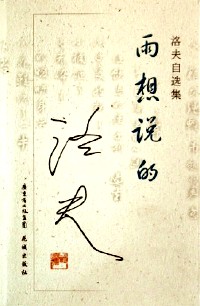 洛夫自选集
雨想说的
洛夫
广东省出版集团
花城出版社